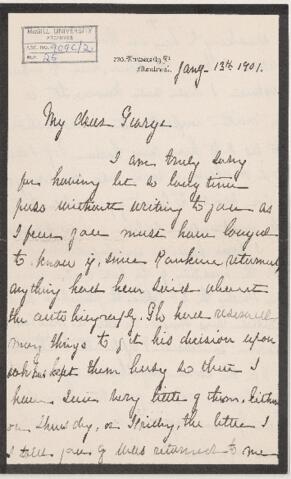 McGILL UNIVERSITY
ARCHIVES
ACC. NO. 909C/2
REF. 25
Montreal.
Jany. 13th 1901.
My dear George
I am truly sorry
for having let so long time
pass without writing to you as
I fear you must have longed
to know if, since Rankine returned,
anything had been said about
the autobiography. He had reserved
many things to get his decision upon
kept them busy so that I
have seen very little of them, either
on Thursday, or Friday, the letter I
I told you of was returned to me